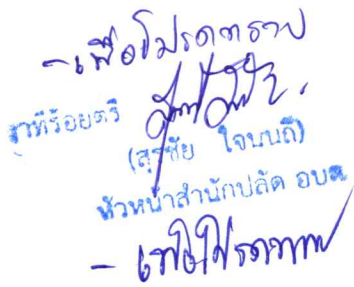 - เพื่อโปรดทราบ
ว่าที่ร้อยตรี
(สุรชัย ใจนนถี)
หัวหน้าสำนักปลัด อบต
- เพื่อโปรดทราบ